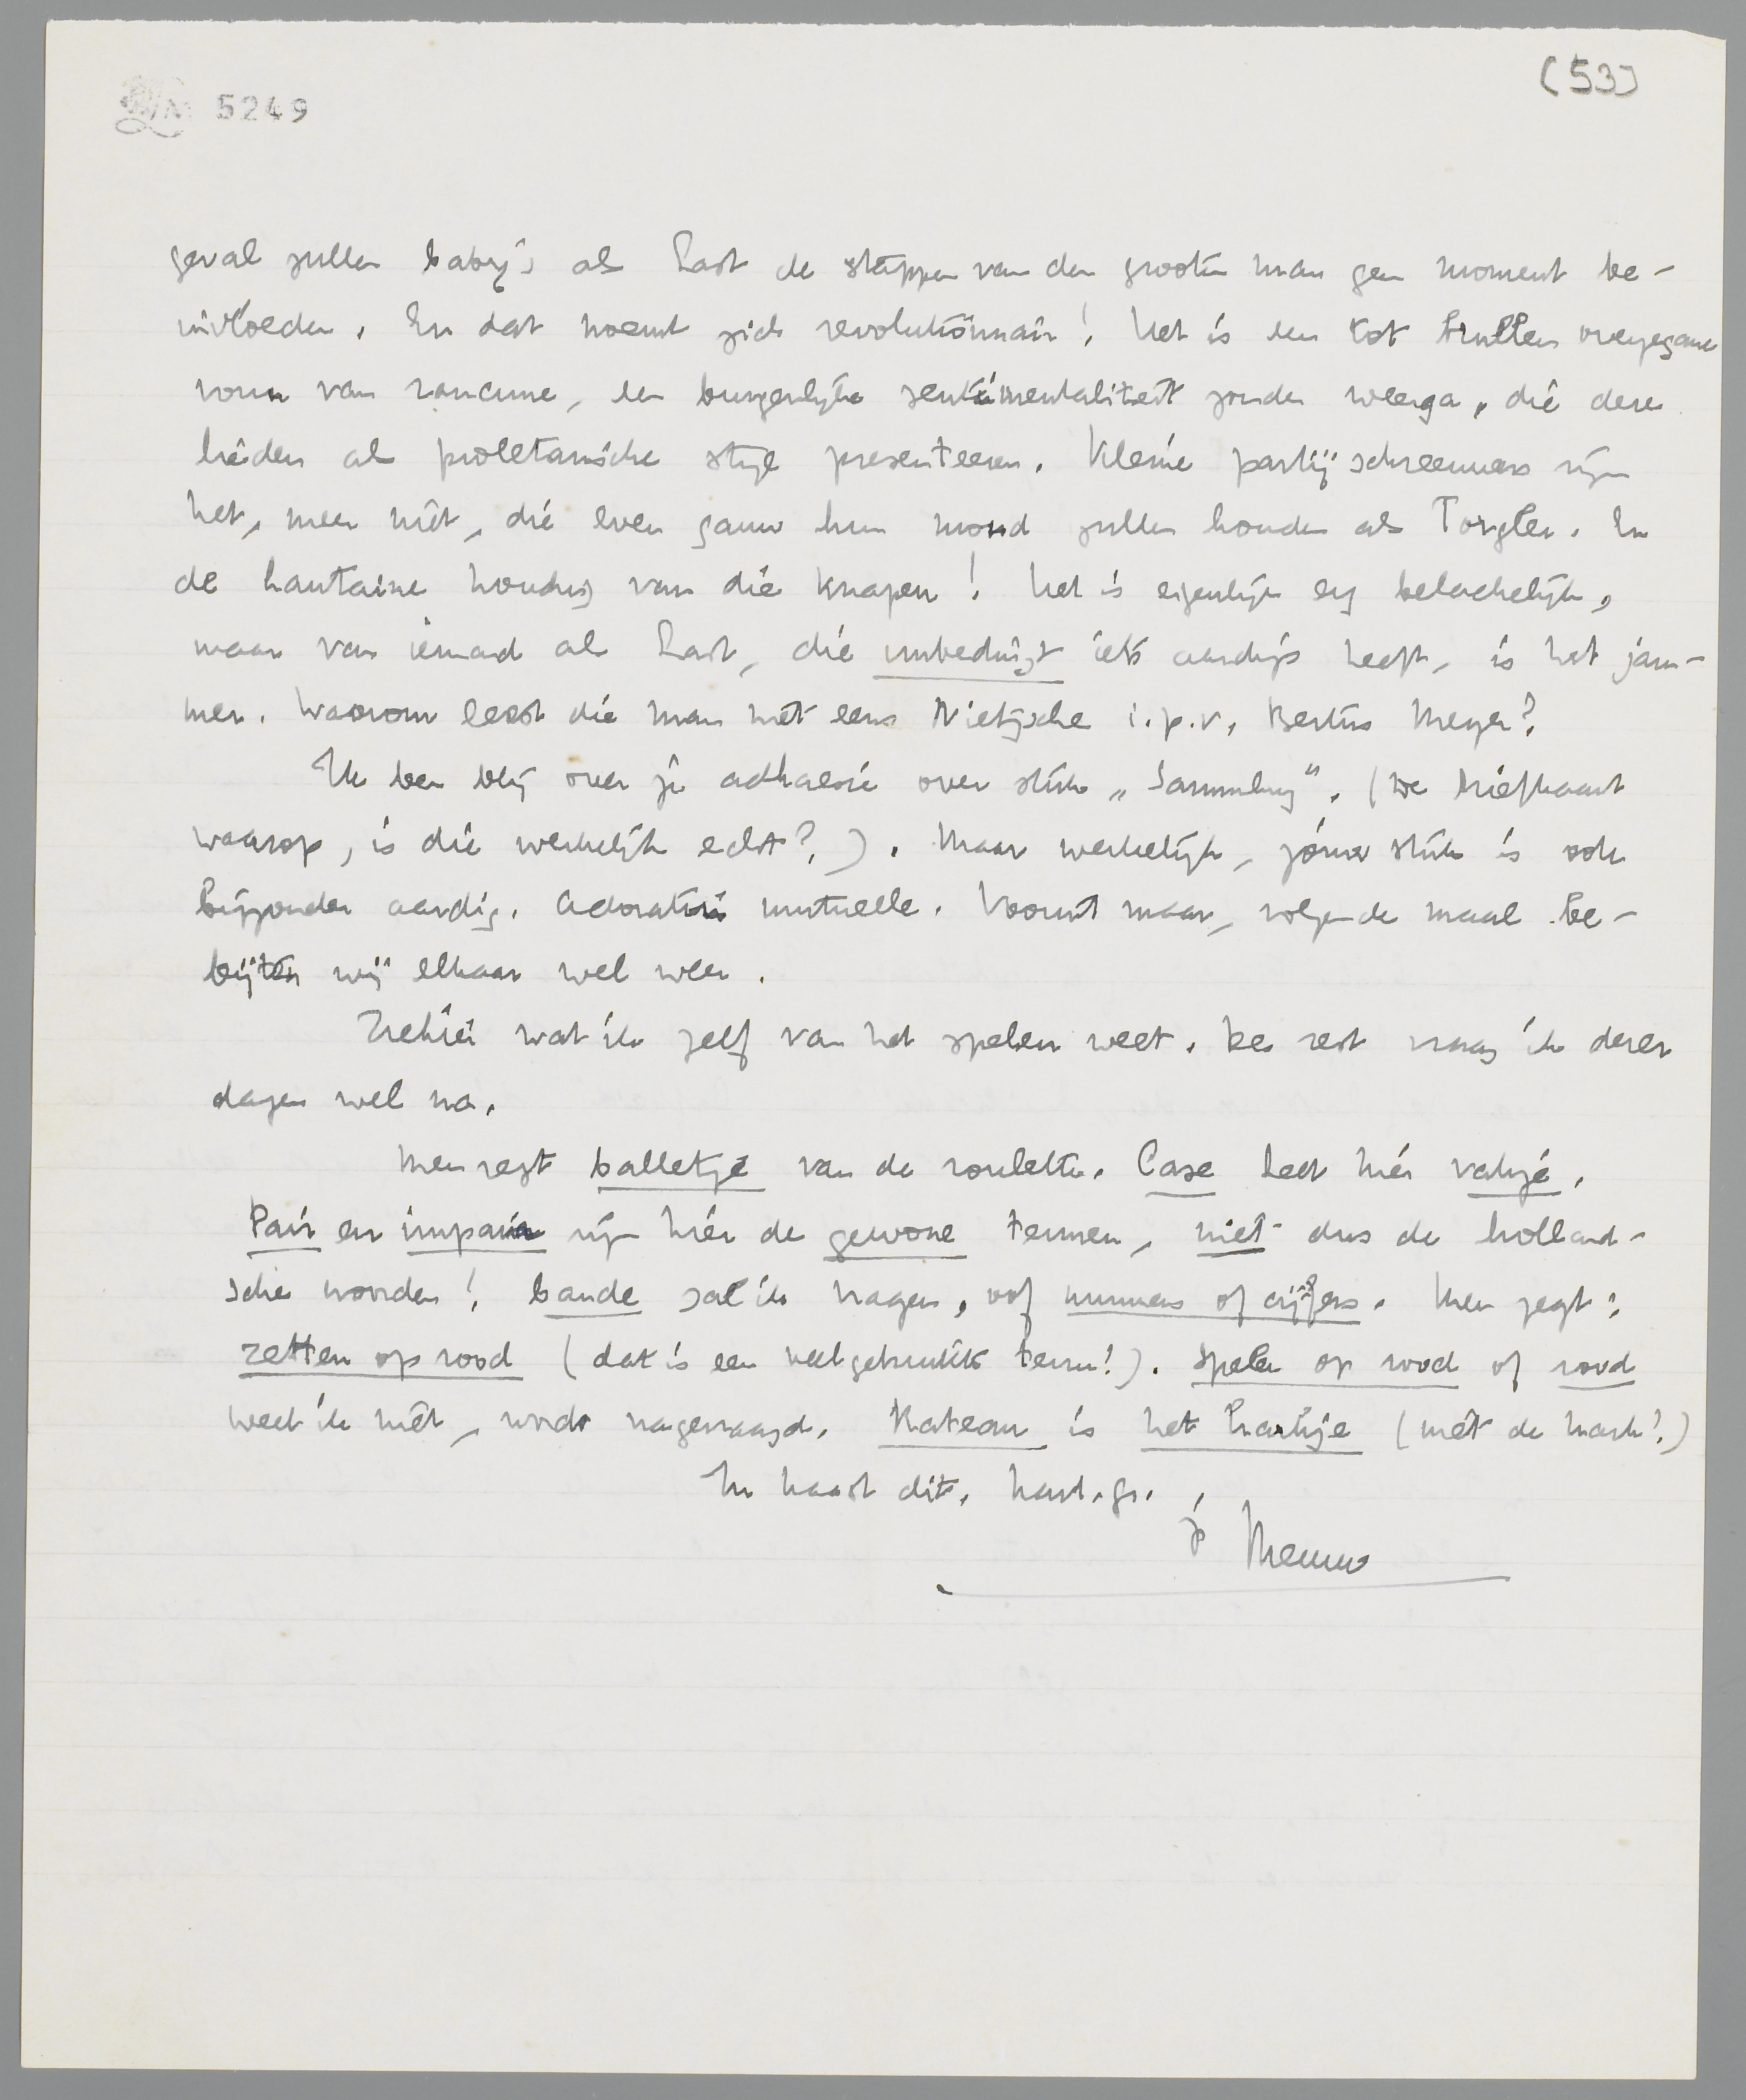 5249
(53)
geval zullen baby's als Last de stappen van den grooten man geen moment be-
invloeden. En dat noemt zich revolutionnair! Het is een tot brullen overgegane
vorm van rancune, een burgerlijke sentimentaliteit zonder weerga, die deze
lieden als proletarische stijl presenteeren. Kleine partijschreeuwers zijn
het, meer niet, die even gauw hun mond zullen houden als Torgler. En
de hautaine houding van die knapen! Het is eigenlijk erg belachelijk,
maar van iemand als Last, die unbedingt iets aardigs heeft, is het jam-
mer. Waarom leest die man niet eens Nietzsche i.p.v. Bertus Meyer?
Ik ben blij over je adhaesie over stuk „Sammlung". (De briefkaart
waarop, is die werkelijk echt?). Maar werkelijk, jouw stuk is ook
bijzonder aardig. Adoration mutuelle. Vooruit maar, volgende maal be-
bijten wij elkaar wel weer.
Ziehier wat ik zelf van het spelen weet. De rest vraag ik dezer
dagen wel na.
Men zegt balletje van de roulette. Case heet hier vakje.
Pair en impair zijn hier de gewone termen, niet dus de holland-
sche woorden! bande zal ik vragen, oof nummers of cijfers. Men zegt:
zetten op rood (dat is een veelgebruikte term!). Spelen op rood of rood
weet ik niet, wordt nagevraagd. Rateau is het harkje (niet de hark!)
In haast dit. hart. gr.
je Menno